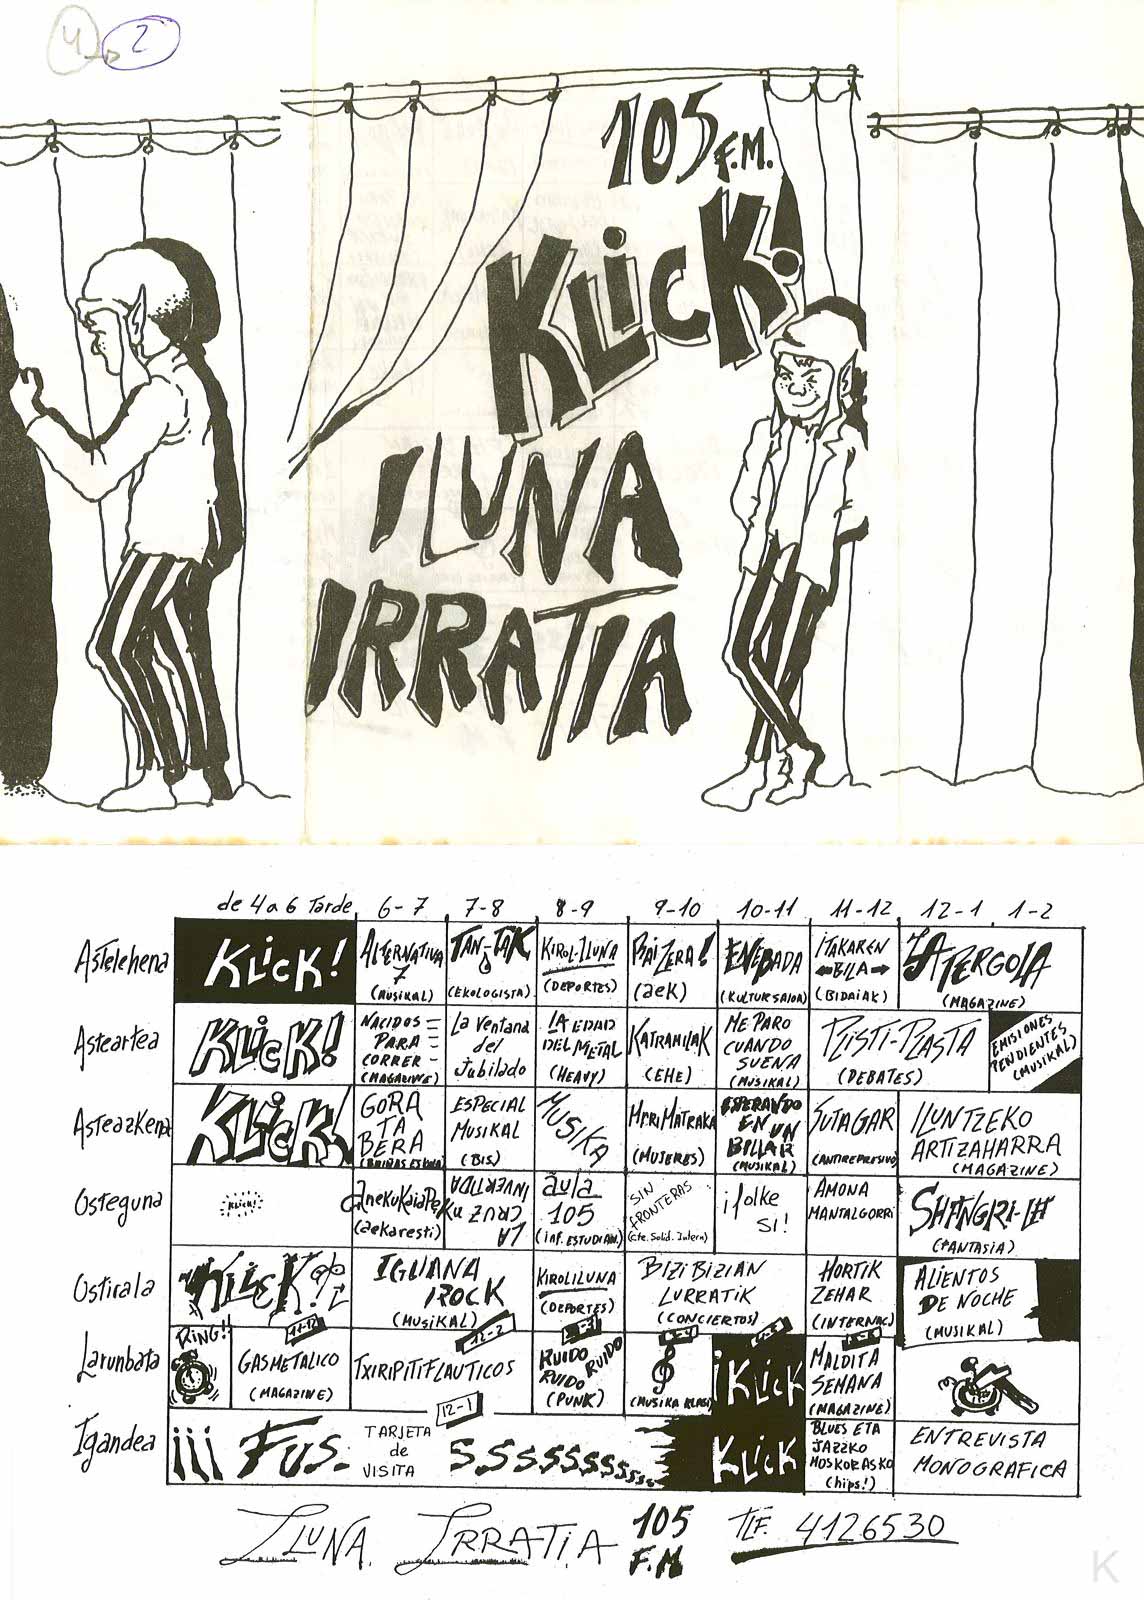 4 → 2
105 F.M.
KLicK!
ILUNA
IRRATIA
de 4 a 6 Tarde 6-7 7-8 8-9 9-10 10-11 11-12 12-1 1-2
Astelehena
KLicK!
ALTERNATIVA 7
(MUSIKAL)
TAN-TAK
(EKOLOGISTA)
KIROL-ILUNA
(DEPORTES)
BAI ZERA!
(aeK)
ENEBADA
(KULTUR SAIOA)
ITAKAREN
BILA
(BIDAIAK)
LA PERGOLA
(MAGAZINE)
Asteartea
KLicK!
NACIDOS
PARA
CORRER
(MAGAZINE)
La Ventana
del
Jubilado
LA EDAD
DEL METAL
(HEAVY)
KATRAMILAK
(EHE)
ME PARO
CUANDO
SUENA
(MUSIKAL)
PLISTI-PLASTA
(DEBATES)
EMISIONES
PENDIENTES
(MUSIKAL)
Asteazkena
KLicK!
GORA
TA
BERA
ESPECIAL
MUSIKAL
(BIS)
MUSIKA
MARI MATRAKA
(MUJERES)
ESPERANDO
EN UN
BILLAR
(MUSIKAL)
SUTAGAR
(ANTIREPRESIVO)
ILUNTZEKO
ARTIZAHARRA
(MAGAZINE)
Osteguna
KLicK!
(aekaresti)
LA
CRUZ
INVERTIDA
aula
105
(inf. ESTUDIAN.)
SIN
FRONTERAS
(Cte. Solid. Intern)
¡folke
SI!
AMONA
MANTALGORRI
SHANGRI-LA
(FANTASIA)
Ostirala
KLicK!
IGUANA
ROCK
(MUSIKAL)
KIROLILUNA
(DEPORTES)
BIZI BIZIAN
LURRATIK
(CONCIERTOS)
HORTIK
ZEHAR
(INTERNAC)
ALIENTOS
DE NOCHE
(MUSIKAL)
Larunbata
RING!!
11-12
GASMETALICO
(MAGAZINE)
12-2
TXIRIPITIFLAUTICOS
RUIDO
RUIDO
RUIDO
(PUNK)
(MUSIKA KLASI)
¡KLicK
MALDITA
SEMANA
(MAGAZINE)
Igandea
¡¡¡ FUS.
12-1
TARJETA
de
VISITA
SSSSSSSSSSS
KLicK
BLUES ETA
JAZZKO
MOSKORASKO
(hips!)
ENTREVISTA
MONOGRAFICA
ILUNA IRRATIA 105 F.M TLF. 4126530
K